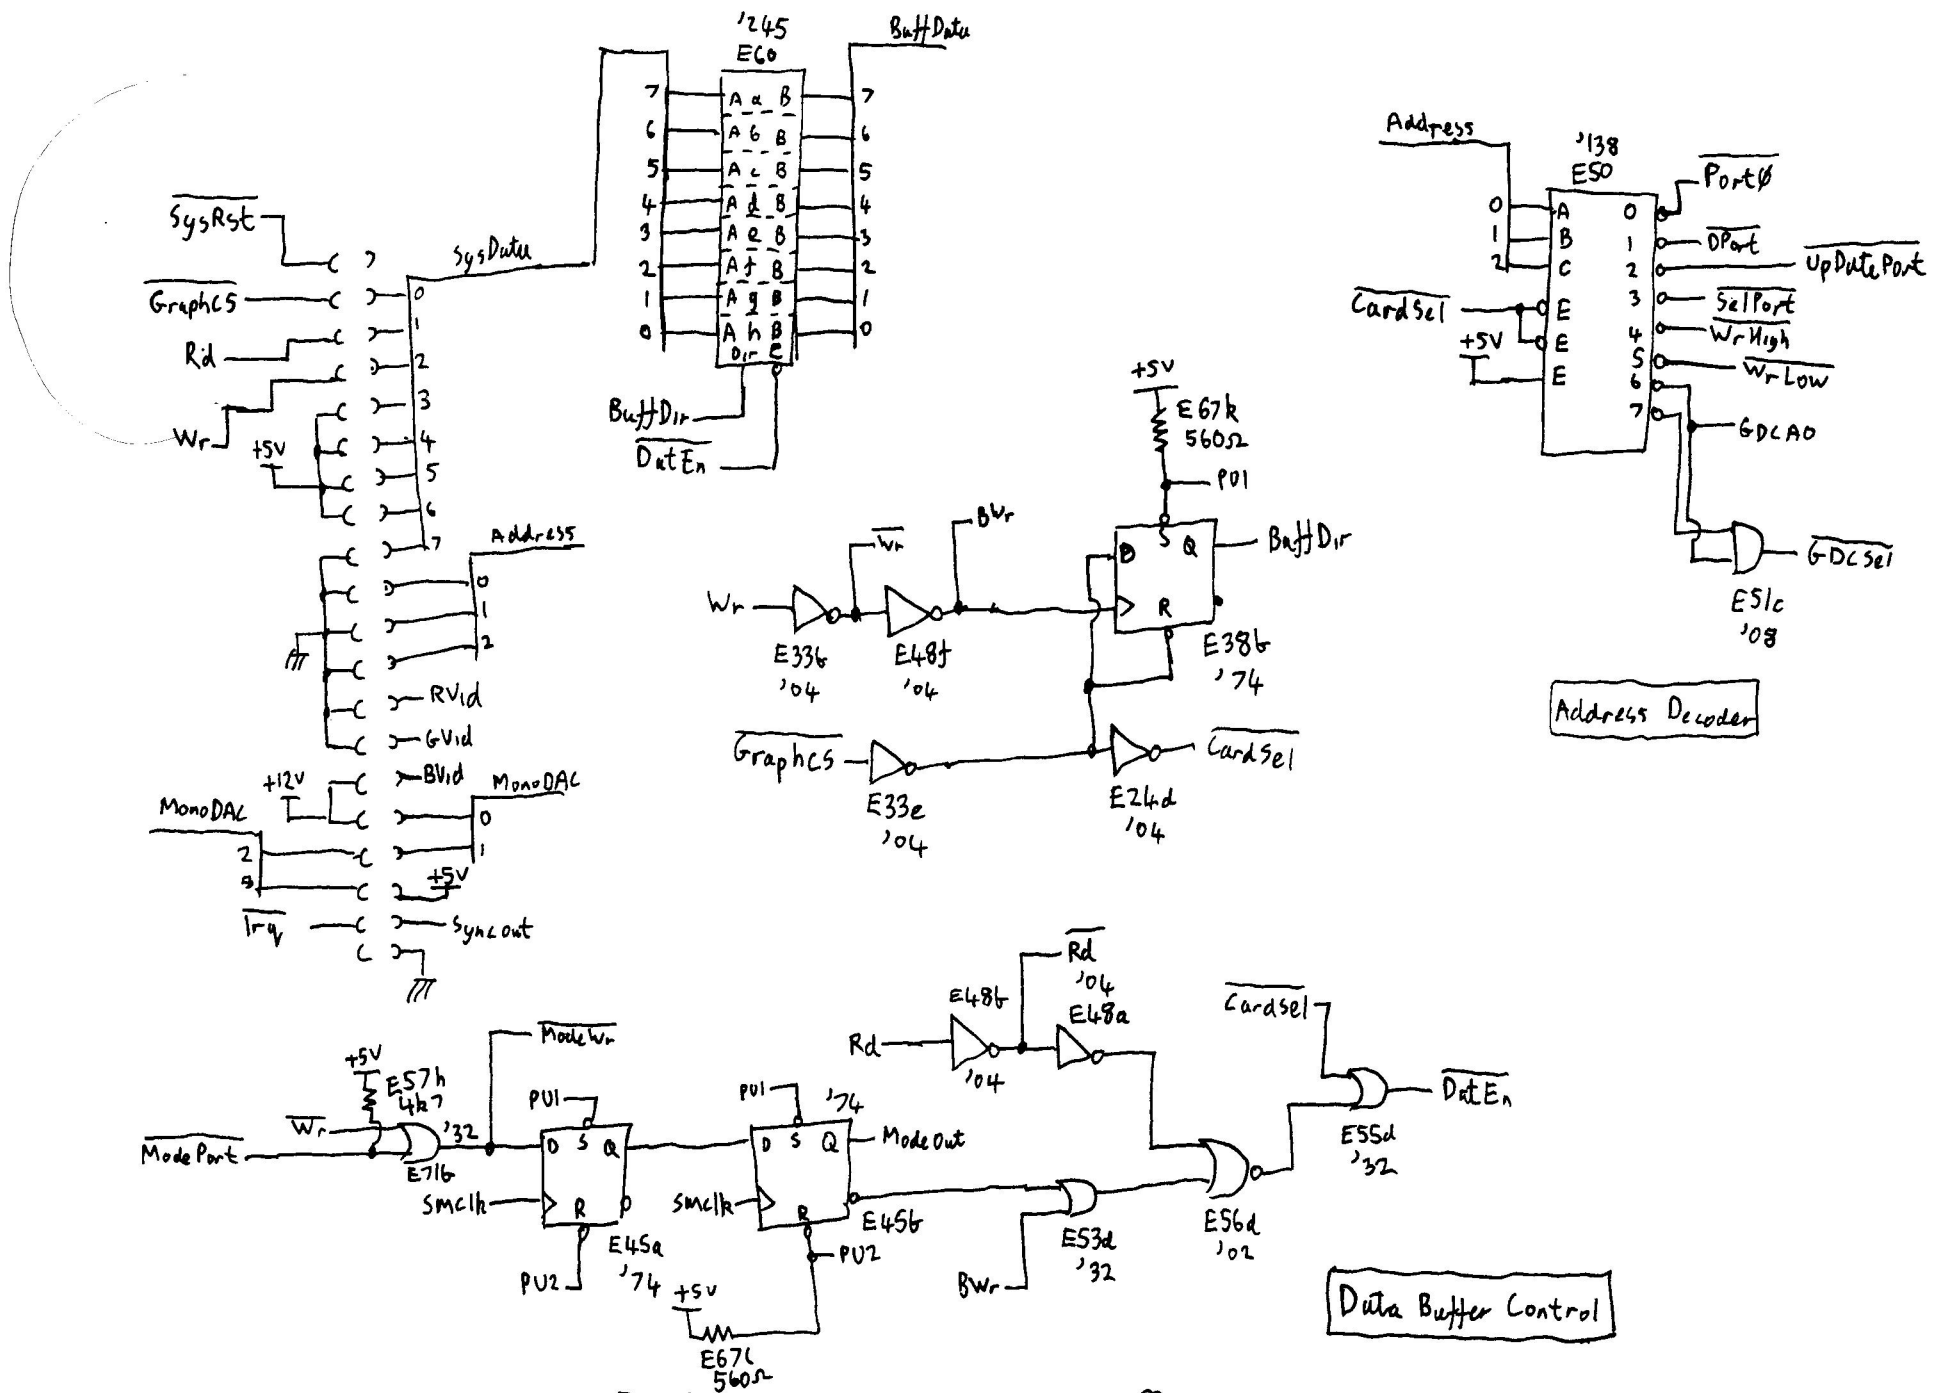 '245
E60
BuffData
7 A a B 7
6 A b B 6
5 A c B 5
4 A d B 4
3 A e B 3
2 A f B 2
1 A g B 1
0 A h B 0
Dir E
BuffDir
DatEn
SysData
SysRst
GraphCS
Rd
Wr
+5V
0
1
2
3
4
5
6
7
Address
0
1
2
RVid
GVid
BVid
+12V
MonoDAC
2
3
MonoDAC
0
1
+5V
Irq
SyncOut
Address
'138
E50
0 A
1 B
2 C
CardSel
E
E
+5V
E
0 Port0
1 DPort
2 UpDatePort
3 SelPort
4 WrHigh
5 WrLow
6
7
GDCA0
GDCSel
E51c
'08
Address Decoder
+5V
E67k
560Ω
PU1
Wr
E33b
'04
Wr
E48f
'04
BWr
D S Q
R
BuffDir
E38b
'74
GraphCS
E33e
'04
E24d
'04
CardSel
+5V
E57h
4k7
Wr
ModePort
'32
E71b
ModeWr
PU1
D S Q
R
smclk
E45a
'74
PU2
PU1
'74
D S Q
R
ModeOut
smclk
E45b
PU2
+5V
E67l
560Ω
Rd
E48b
'04
Rd
'04
E48a
CardSel
DatEn
E55d
'32
BWr
E53d
'32
E56d
'02
Data Buffer Control